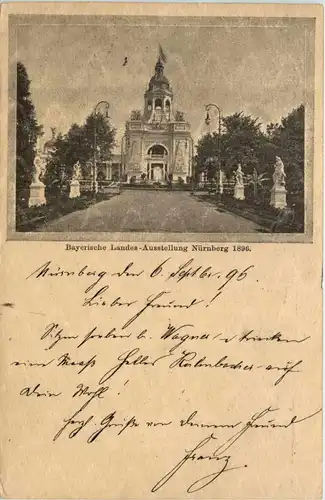 Bayerische Landes-Ausstellung Nürnberg 1896.
Nürnberg den 6. Septbr. 96
Lieber Freund!
Sitzen soeben b. Wagner u trinken
eine Maaß Helles Kulmbacher auf
Dein Wohl!
herzl. Grüße von Deinem Freund
Franz.